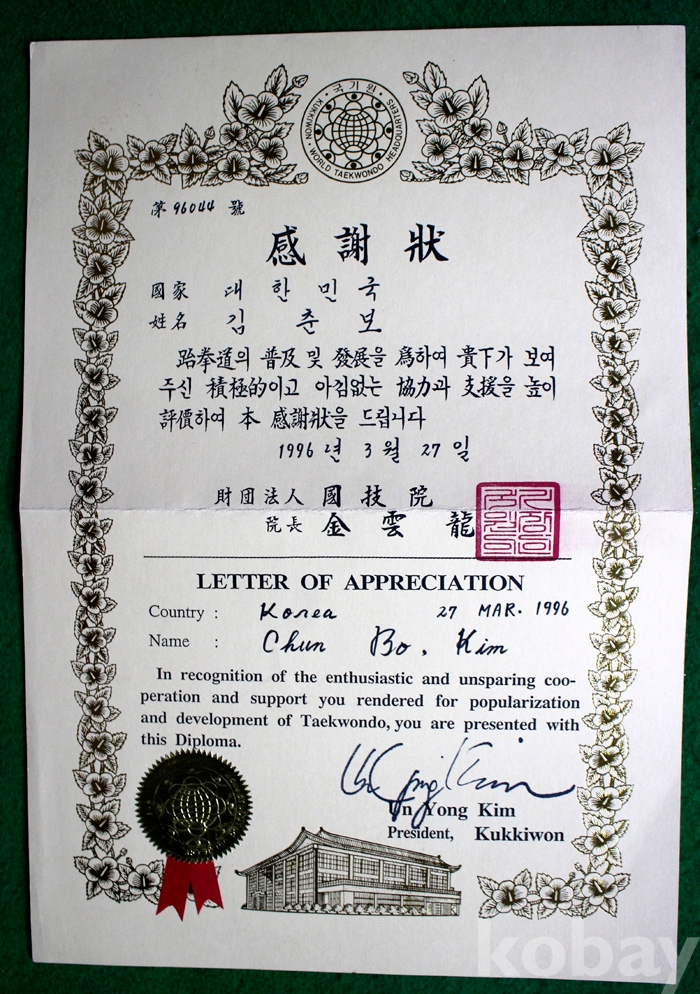 국기원
KUKKIWON · WORLD TAEKWONDO HEADQUARTERS
第 96044 號
感謝狀
國家 대한민국
姓名 김춘보
跆拳道의 普及 및 發展을 爲하여 貴下가 보여
주신 積極的이고 아낌없는 協力과 支援을 높이
評價하여 本 感謝狀을 드립니다
1996 년 3 월 27 일
財団法人 國技院
院長 金雲龍
LETTER OF APPRECIATION
Country : Korea 27 MAR. 1996
Name : Chun Bo. Kim
In recognition of the enthusiastic and unsparing coo-
peration and support you rendered for popularization
and development of Taekwondo, you are presented with
this Diploma.
Un Yong Kim
President, Kukkiwon
kobay